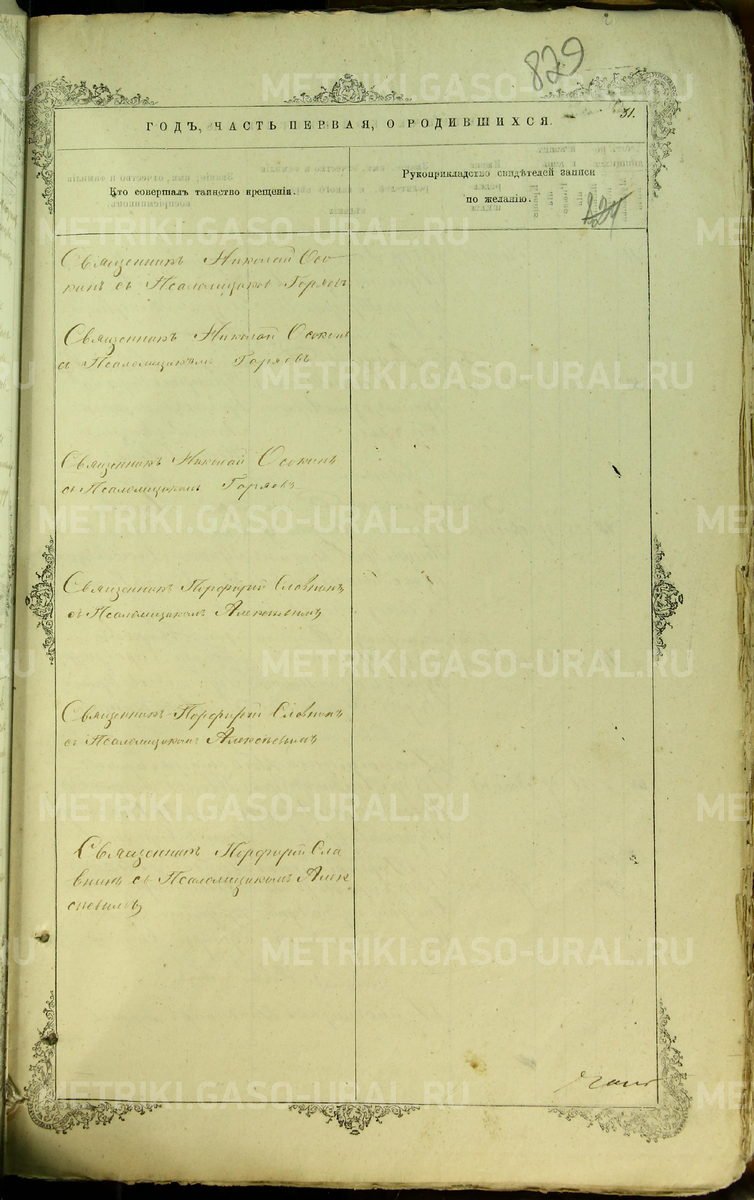 829
31.
ГОДЪ, ЧАСТЬ ПЕРВАЯ, О РОДИВШИХСЯ.
Кто совершалъ таинство крещенія.
Рукоприкладство свидѣтелей записи
по желанію.
824
Священникъ Николай Осо-
кинъ съ Псаломщиком Горяевъ
Священникъ Николай Осокинъ
съ Псаломщикомъ Горяевъ
Священникъ Николай Осокинъ
съ Псаломщикомъ Горяевъ
Священникъ Порфирій Славнинъ
съ Псаломщикомъ Алексѣевымъ
Священникъ Порфирій Славнинъ
съ Псаломщикомъ Алексѣевымъ
Священникъ Порфирій Сла
внинъ съ Псаломщикомъ Алек
сѣевымъ
METRIKI.GASO-URAL.RU